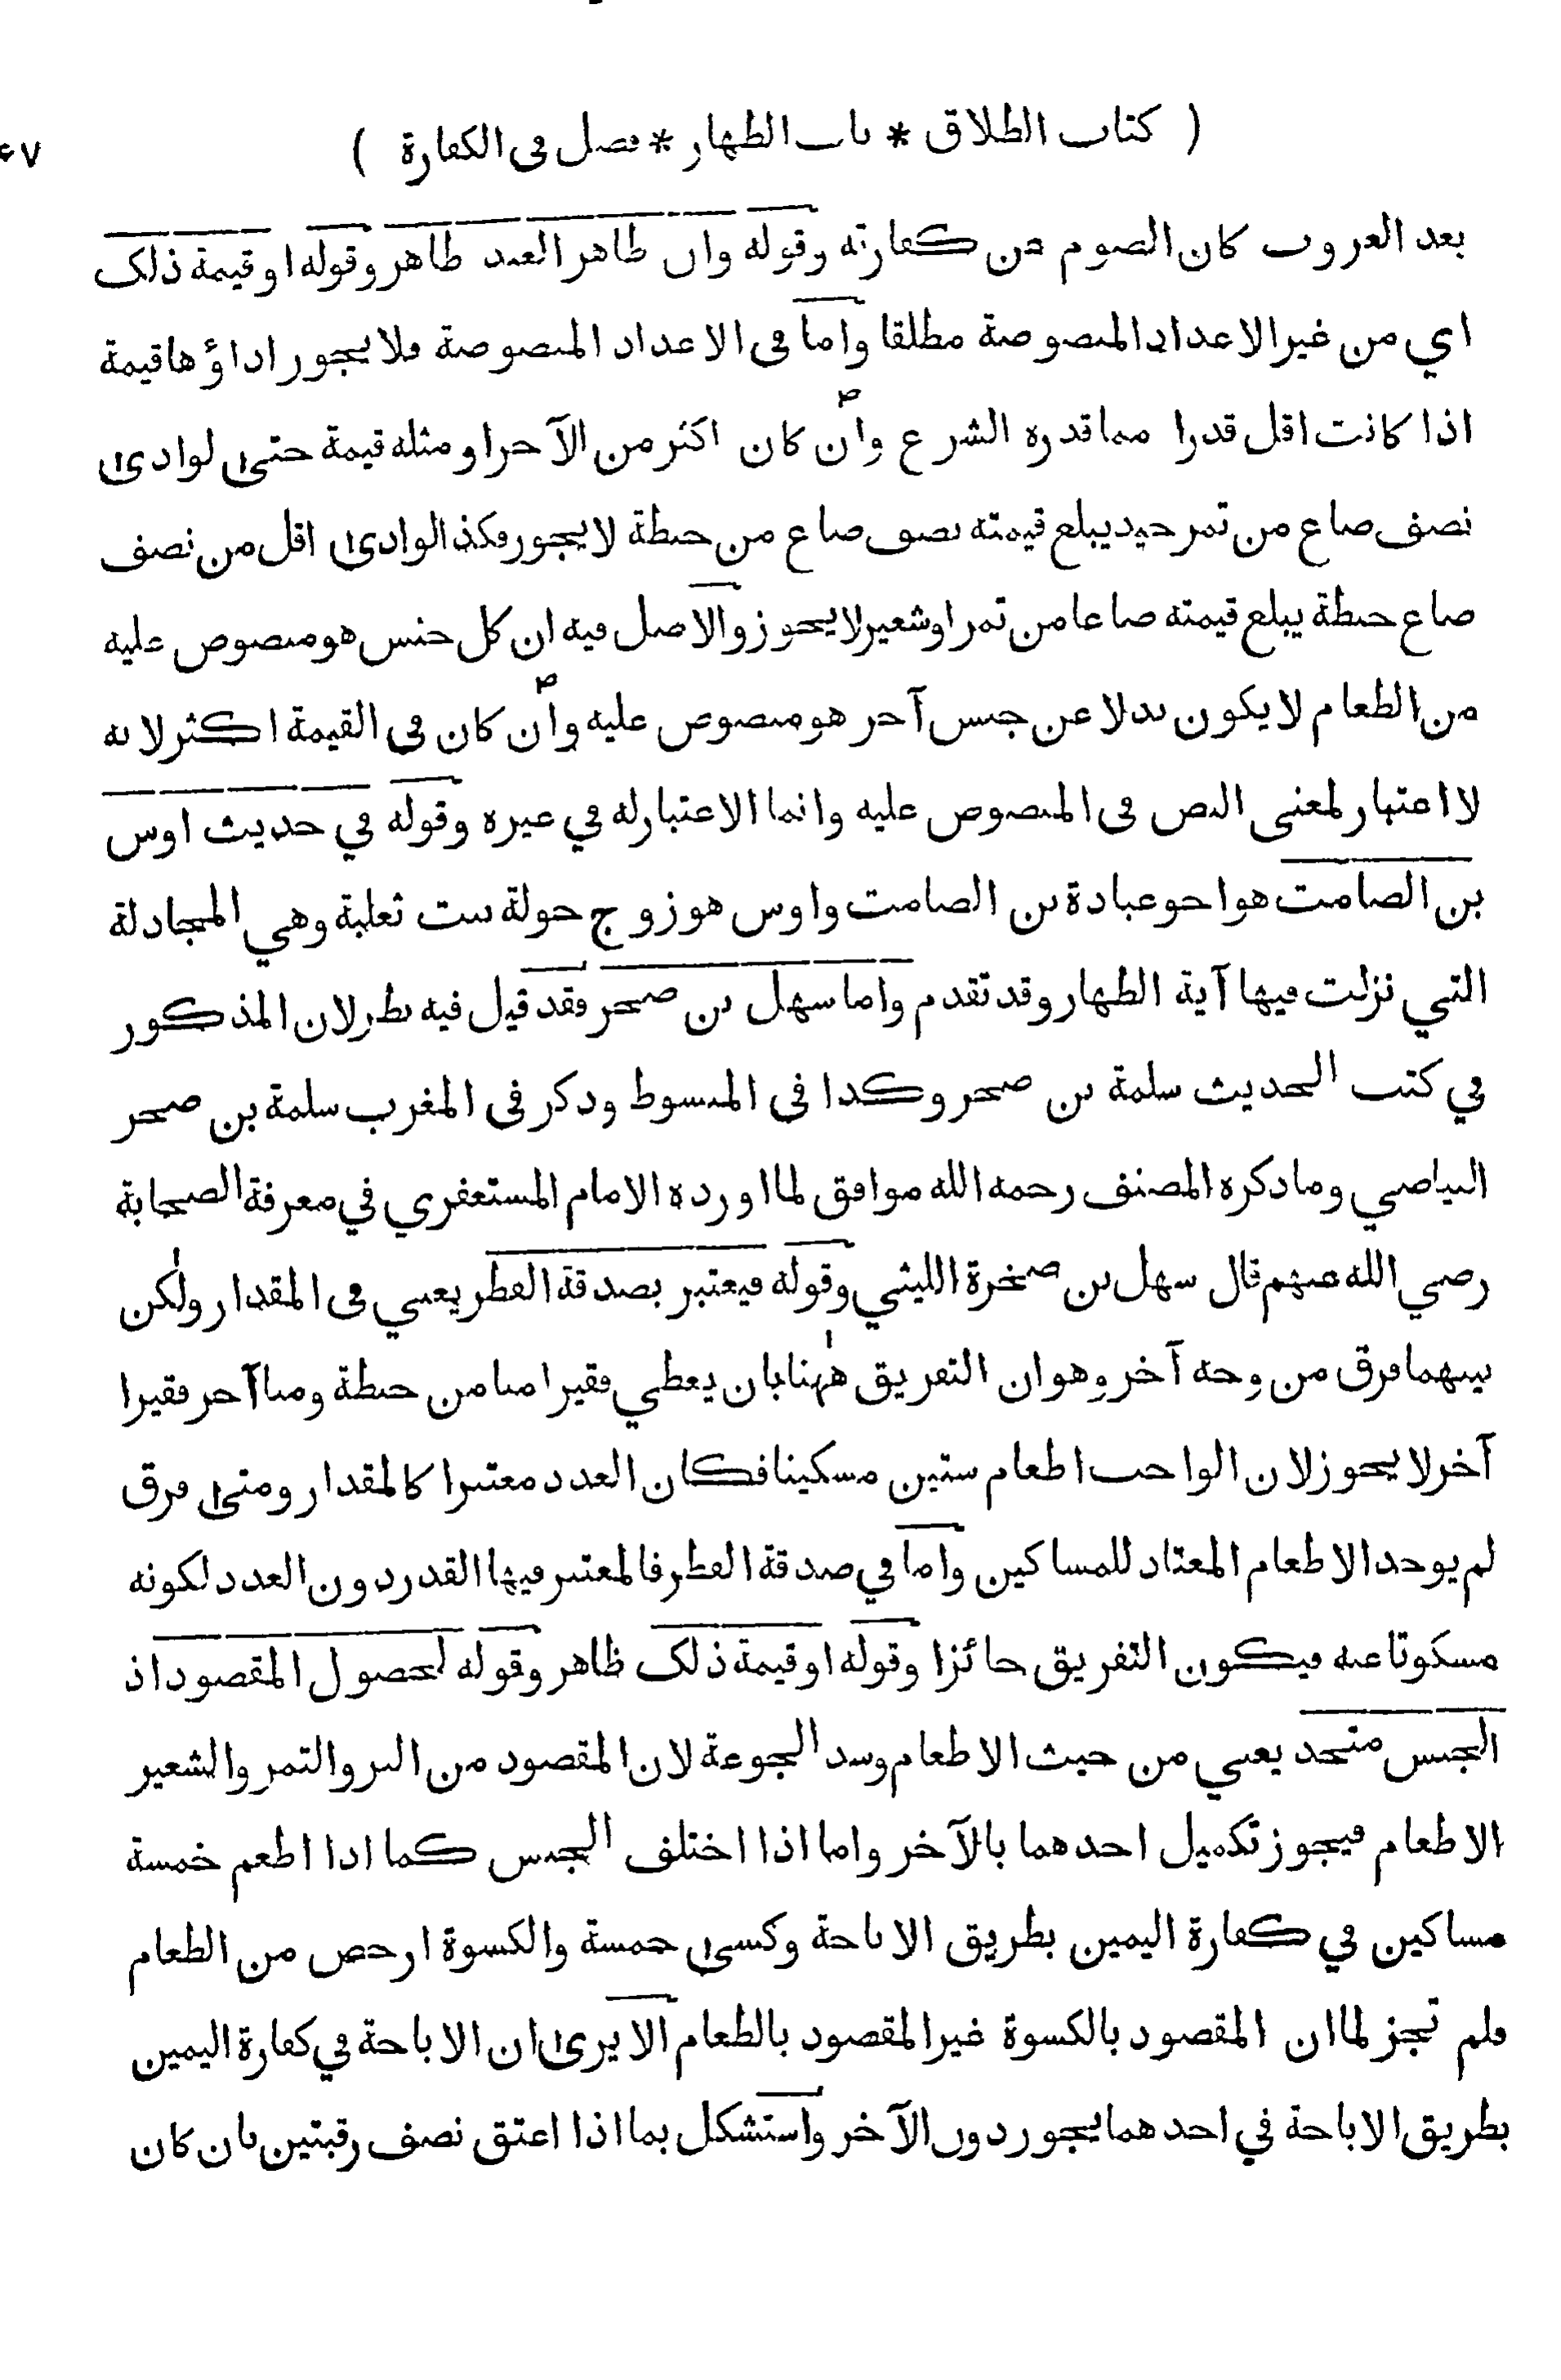 ( كتاب الطلاق * باب الظهار * فصل في الكفارة )
بعد الغروب كان الصوم من كفارته وقوله وان ظاهر العبد ظاهر وقوله او قيمة ذلك
اي من غير الاعداد المنصوصة مطلقا واما في الاعداد المنصوصة فلا يجوز اداؤها قيمة
اذا كانت اقل قدرا مما قدره الشرع وان كان اكثر من الآخر او مثله قيمة حتى لو ادى
نصف صاع من تمر جيد يبلغ قيمته نصف صاع من حنطة لا يجوز فكذا لو ادى اقل من نصف
صاع حنطة يبلغ قيمته صاعا من تمر او شعير لا يجوز والاصل فيه ان كل جنس هو منصوص عليه
من الطعام لا يكون بدلا عن جنس آخر هو منصوص عليه وان كان في القيمة اكثر لانه
لا اعتبار لمعنى النص في المنصوص عليه وانما الاعتبار له في غيره وقوله في حديث اوس
بن الصامت هو اخو عبادة بن الصامت واوس هو زوج خولة بنت ثعلبة وهي المجادلة
التي نزلت فيها آية الظهار وقد تقدم واما سهل بن صخر فقد قيل فيه نظر لان المذكور
في كتب الحديث سلمة بن صخر وكذا في المبسوط وذكر في المغرب سلمة بن صخر
البياضي وما ذكره المصنف رحمه الله موافق لما اورده الامام المستغفري في معرفة الصحابة
رضي الله عنهم قال سهل بن صخرة الليثي وقوله فيعتبر بصدقة الفطر يعني في المقدار ولٰكن
بينهما فرق من وجه آخر وهو ان التفريق هٰهنا بان يعطي فقيرا منا من حنطة ومنا آخر فقيرا
آخر لا يجوز لان الواجب اطعام ستين مسكينا فكان العدد معتبرا كالمقدار ومتى فرق
لم يوجد الاطعام المعتاد للمساكين واما في صدقة الفطر فالمعتبر فيها القدر دون العدد لكونه
مسكوتا عنه فيكون التفريق جائزا وقوله او قيمة ذلك ظاهر وقوله لحصول المقصود اذ
الجنس متحد يعني من حيث الاطعام وسد الجوعة لان المقصود من البر والتمر والشعير
الاطعام فيجوز تكميل احدهما بالآخر واما اذا اختلف الجنس كما اذا اطعم خمسة
مساكين في كفارة اليمين بطريق الاباحة وكسى خمسة والكسوة ارخص من الطعام
فلم تجز لما ان المقصود بالكسوة غير المقصود بالطعام الا يرى ان الاباحة في كفارة اليمين
بطريق الاباحة في احدهما يجوز دون الآخر واستشكل بما اذا اعتق نصف رقبتين بان كان